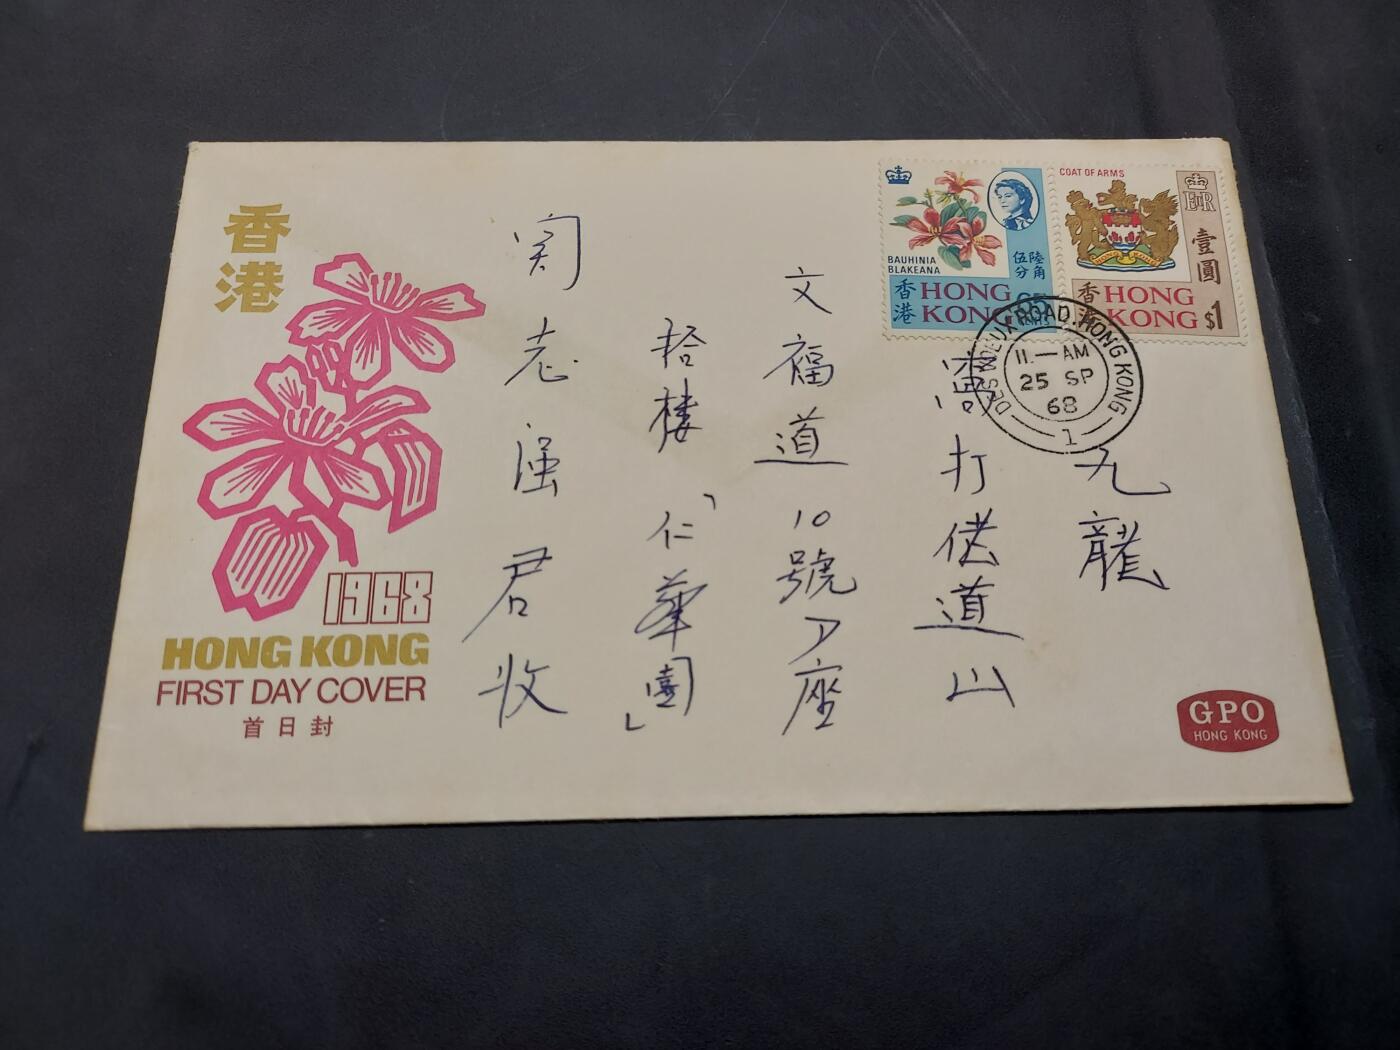 香港
1968
HONG KONG
FIRST DAY COVER
首日封
BAUHINIA
BLAKEANA
陸角
伍分
香港
HONG
KONG
65
CENTS
COAT OF ARMS
E II R
壹圓
香港
HONG
KONG
$1
DES VOEUX ROAD. HONG KONG
11.—AM
25 SP
68
1
九龍
窩打佬道山
文福道10號A座
拾樓「仁華園」
周志强君收
GPO
HONG KONG